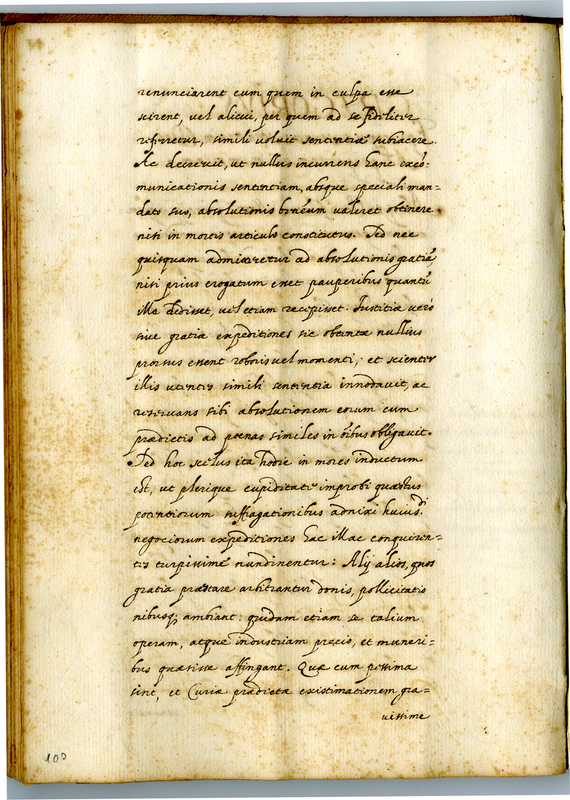 renunciarent eum quem in culpa esse
scirent, vel alicui, per quem ad se fideliter
referretur, simili voluit sententiæ subiacere.
Ac decrevit, ut nullus incurrens hanc excõ-
municationis sententiam, absque speciali man=
dato suo, absolutionis beneficium valeret obtinere
nisi in mortis articulo constitutus. Sed nec
quisquam admitteretur ad absolutionis gratiã
nisi prius erogatum esset pauperibus quantũ
illa dedisset, vel etiam recepisset. Iustitiæ verò
sive gratiæ expeditiones sic obtentæ nullius
prorsus essent roboris vel momenti; et scienter
illis utentes simili sententia innodavit, ac
reservans sibi absolutionem eorum cum
prædictis ad poenas similes in õibus obligavit.
Sed hoc scelus ita hodie in mores inductum
est, ut plerique cupiditate improbi quæstus
potentiorum suffragationibus adnixi huius
negociorum expeditiones hac illac conquiren=
tes turpissime nundinentur: Alij alios, quos
gratia præstare arbitrantur donis, pollicitatio
nibusq; ambiant: quidam etiam se talium
operam, atque industriam precio, et muneri=
bus quæsisse affingant. Quæ cum pessima
sint, et Curiæ prædictæ existimationem gra=
vissime
100